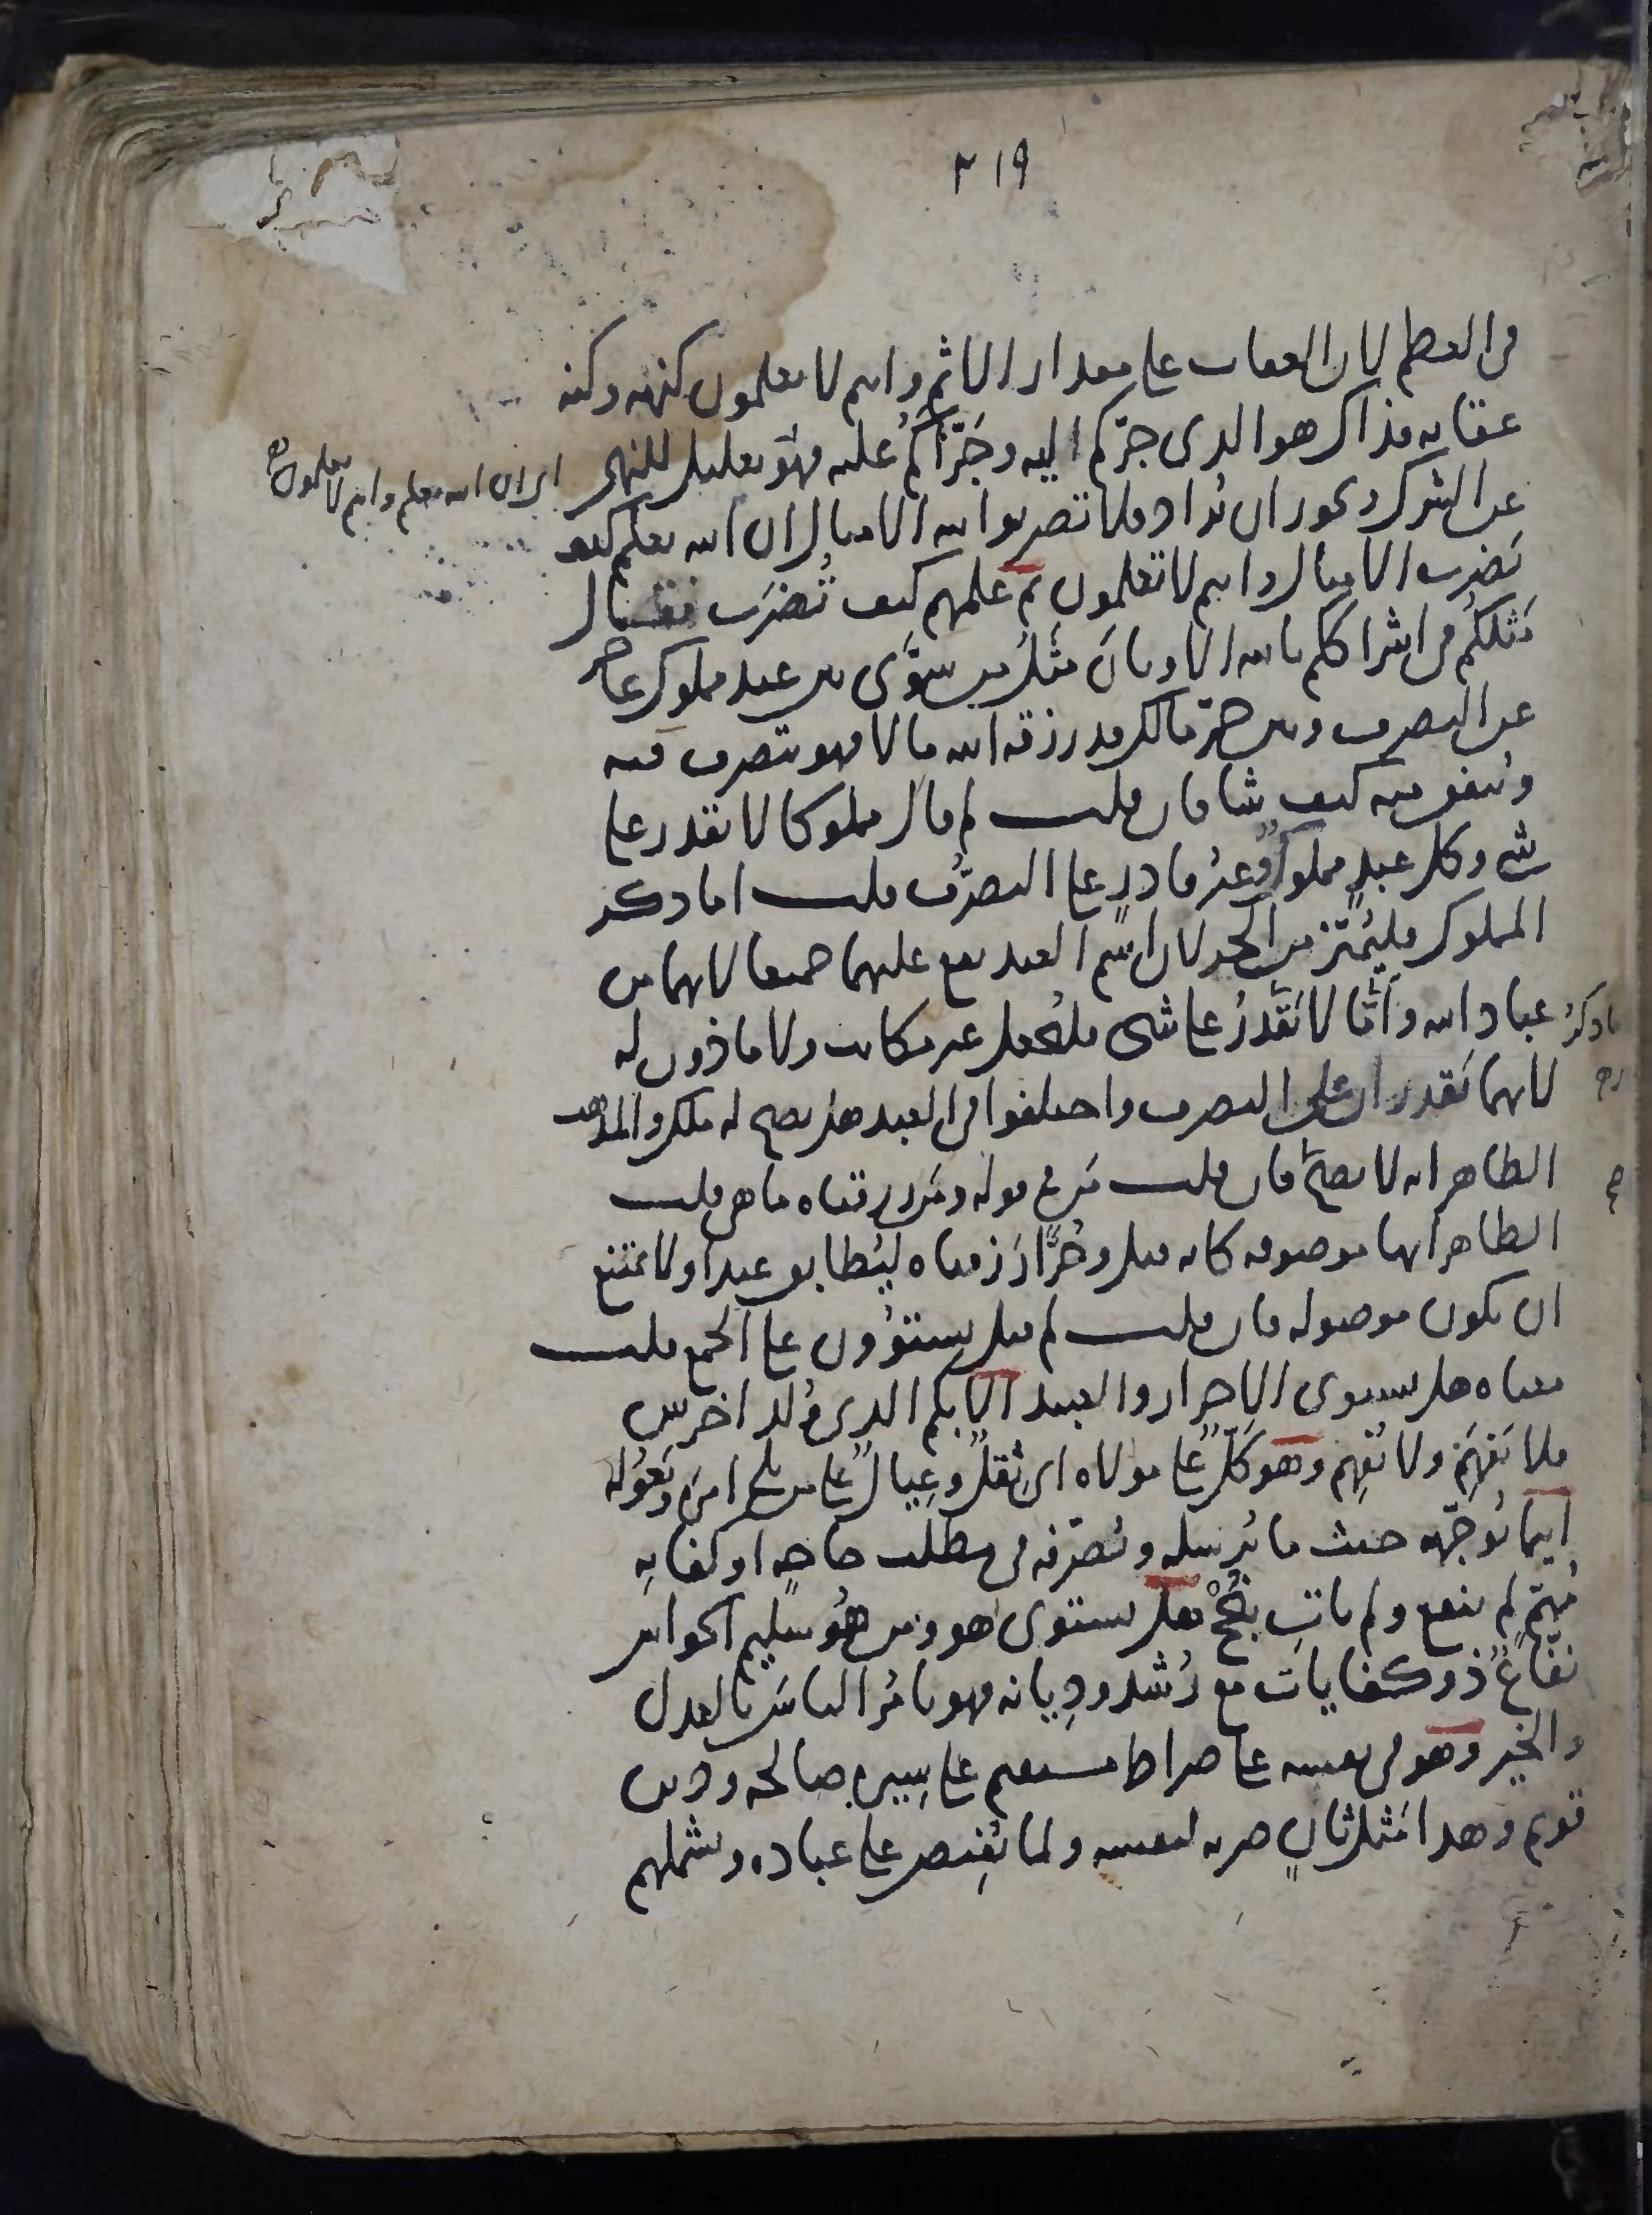 ٢١٩
في العظم لان العقاب على مقدار الاثم وانتم لا تعلمون كنهه وكنه
عقابه فذاك هو الذي جركم اليه وجرّأكم عليه فهو تعليل للنهي
اي ان الله يعلم وانتم لا تعلمون
عن الشرك ويجوز ان يراد فلا تضربوا لله الامثال ان الله يعلم كيف
تضرب الامثال وانتم لا تعلمون ثم علمهم كيف تُضرَب فقال
مَثَلكُم في اشراككم بالله الاوثان مثلُ من سوّى بين عبد مملوك عاجز
عن التصرف وبين حرّ مالك قد رزقه الله مالا فهو يتصرف فيه
وينفق منه كيف شا فان قلت لم قال مملوكا لا يقدر على
شي وكل عبدٍ مملوكٌ وغيرُ قادرٍ على التصرّف قلت اما ذكر
المملوك فليُميّز من الحر لان اسم العبد يقع عليهما جميعا لانهما من
عباد الله وأمّا لا يَقْدِرُ على شي فليُجعل غير مكاتب ولا ماذون له
لانهما يَقدران على التصرف واختلفوا في العبد هل يصح له ملك والمذهب
الظاهر انه لا يصحّ فان قلت مَن في قوله ومَن رزقناه ما هي قلت
الظاهر انها موصوفه كانه قيل وحُرًّا رَزقناه ليُطابق عبدا ولا يمتنع
ان تكون موصوله فان قلت لم قيل يستوُون على الجمع قلت
معناه هل يستوي الاحرار والعبيد الابكم الذي وُلد اخرس
فلا يَفهَمُ ولا يُفهِم وهو كَلٌّ على مولاه اي ثِقلٌ وعِيالٌ على من يلي امره ويَعُوله
اينما يُوجّهه حيث ما يُرسله ويُصَرّفه في مطلب حاجه او كفايه
مُهِمٍّ لم ينفع ولم يات بنُجْحٍ هل يستوي هو ومن هُو سليم الحواس
نفّاعٌ ذو كفايات مع رُشد ودِيانه فهو يامُر الناسَ بالعدل
والخير وهو في نفسه على صراط مستقيم على سِيرهٍ صالحه ودين
قويم وهذا مَثَل ثانٍ ضربه لنفسه ولما يُفِيض على عباده ويشملهم